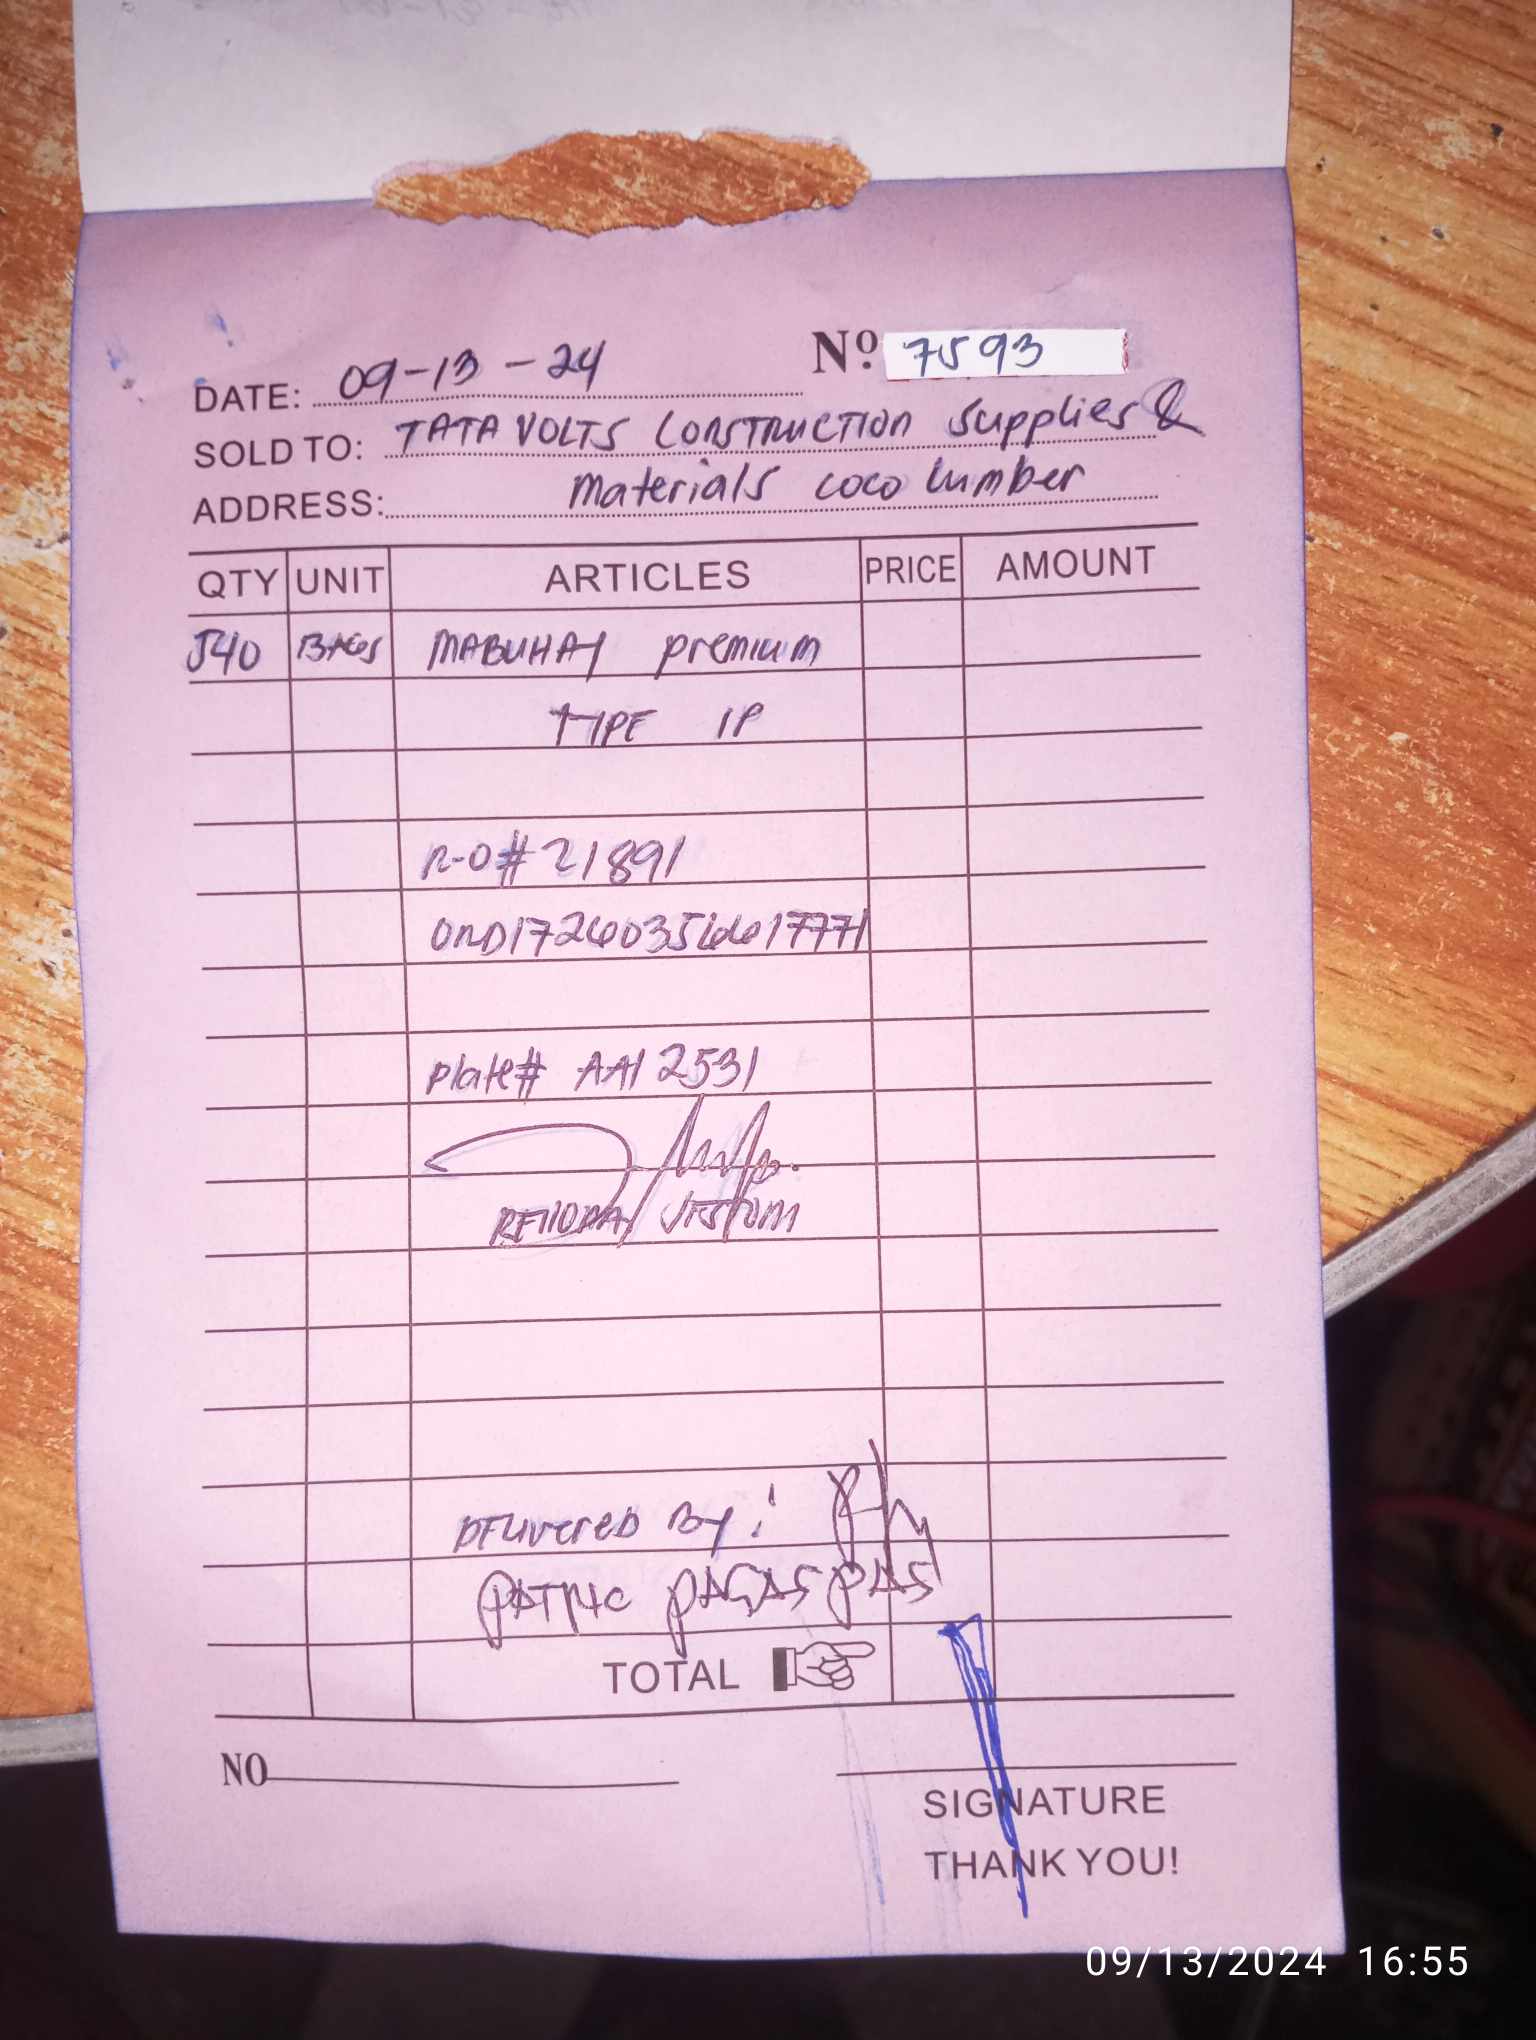 Nº 7593
DATE: 09-13-24
SOLD TO: TATA VOLTS CONSTRUCTION Supplies &
ADDRESS: Materials coco lumber
QTY UNIT ARTICLES PRICE AMOUNT
540 BAGS MABUHAY premium
TYPE 1P
R-O# 21891
Plate# AAI 2531
DELIVERED By:
PATRIC PAGASPAS
TOTAL
NO
SIGNATURE
THANK YOU!
09/13/2024 16:55